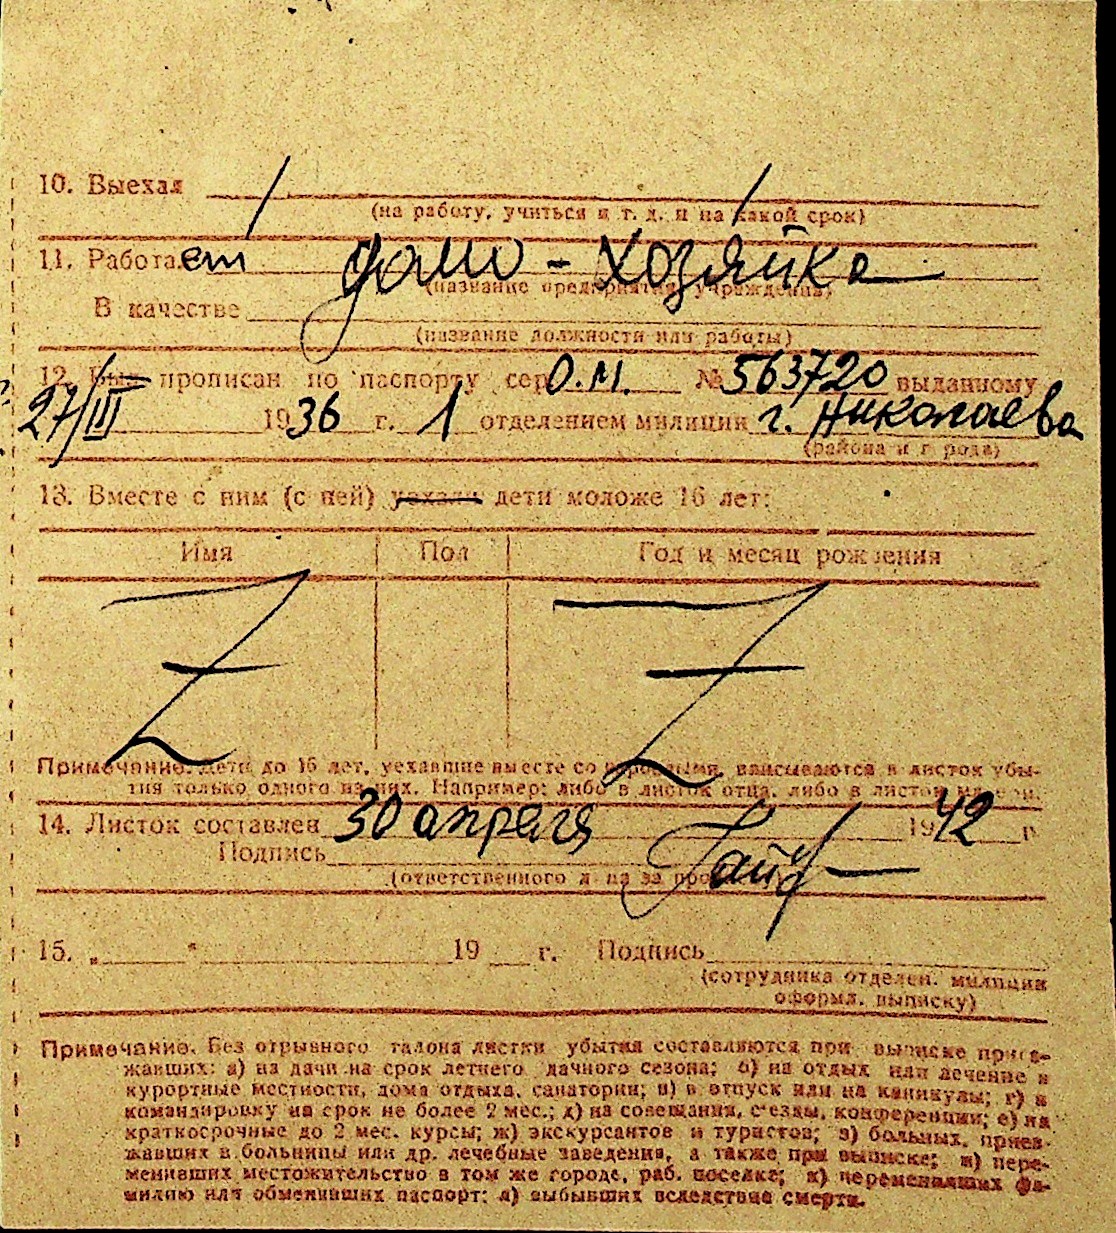 10. Выехал
(на работу, учиться и т. д. и на какой срок)
11. Работает домо-хозяйка
(название предприятия, учреждения)
В качестве
(название должности или работы)
12. Был прописан по паспорту сер. О.М. № 563720 выданному
27/III 1936 г. 1 отделением милиции г. Николаева
(района и города)
13. Вместе с ним (с ней) уехали дети моложе 16 лет:
Имя Пол Год и месяц рождения
Примечание. Дети до 16 лет, уехавшие вместе со взрослыми, вписываются в листок убы-
тия только одного из них. Например: либо в листок отца, либо в листок матери.
14. Листок составлен 30 апреля 1942 г.
Подпись
(ответственного л-ца за проп
15. „ " 19 г. Подпись
(сотрудника отделен. милиции
оформл. выписку)
Примечание. Без отрывного талона листки убытия составляются при выписке приез-
жавших: а) на дачи на срок летнего дачного сезона; б) на отдых или лечение в
курортные местности, дома отдыха, санатории; в) в отпуск или на каникулы; г) в
командировку на срок не более 2 мес.; д) на совещания, съезды, конференции; е) на
краткосрочные до 2 мес. курсы; ж) экскурсантов и туристов; з) больных, приез-
жавших в больницы или др. лечебные заведения, а также при выписке; и) пере-
менивших местожительство в том же городе, раб. поселке; к) переменивших фа-
милию или обменивших паспорт; л) выбывших вследствие смерти.